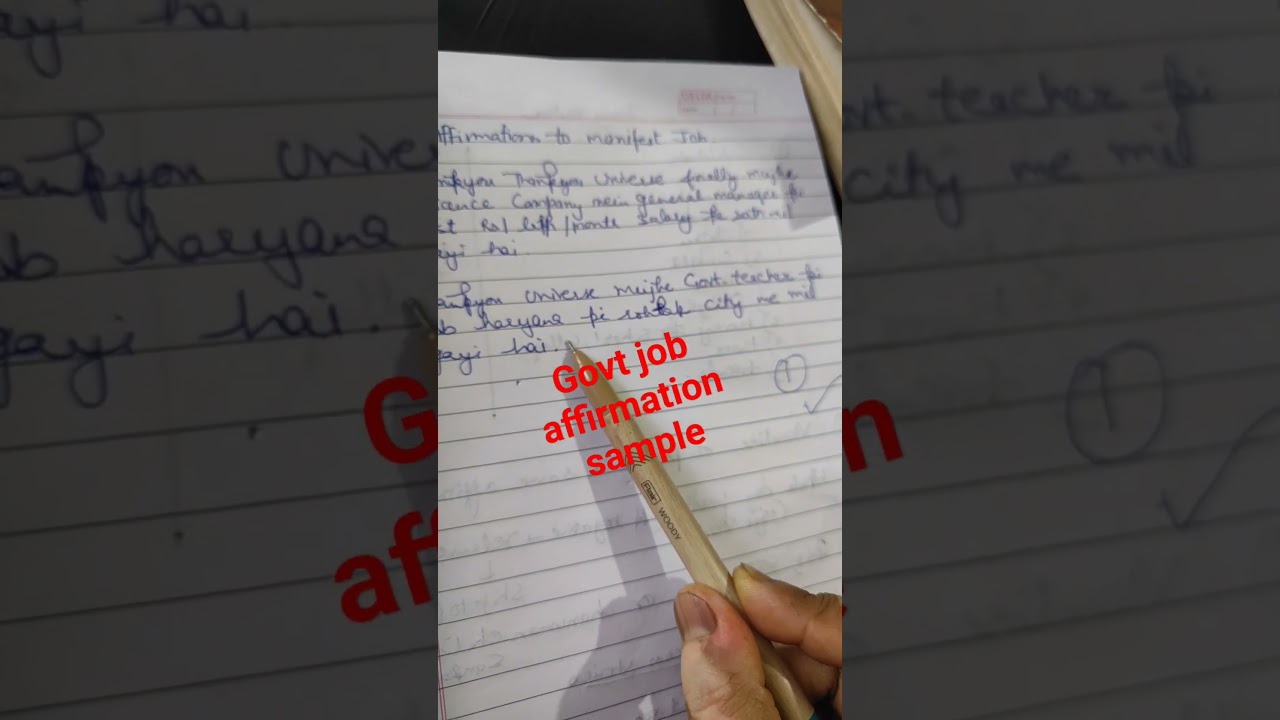 ffirmation to manifest Job.
nkyou Thankyou Universe finally mujhe
rance Company mein general manager ki
st Rs/ /month salary ke sath mil
ayi hai.
ankyou Universe mujhe Govt. teacher ki
ob haryana ki rohtak city me mil
gayi hai.
1
Govt job
affirmation
sample
Flair WOODY